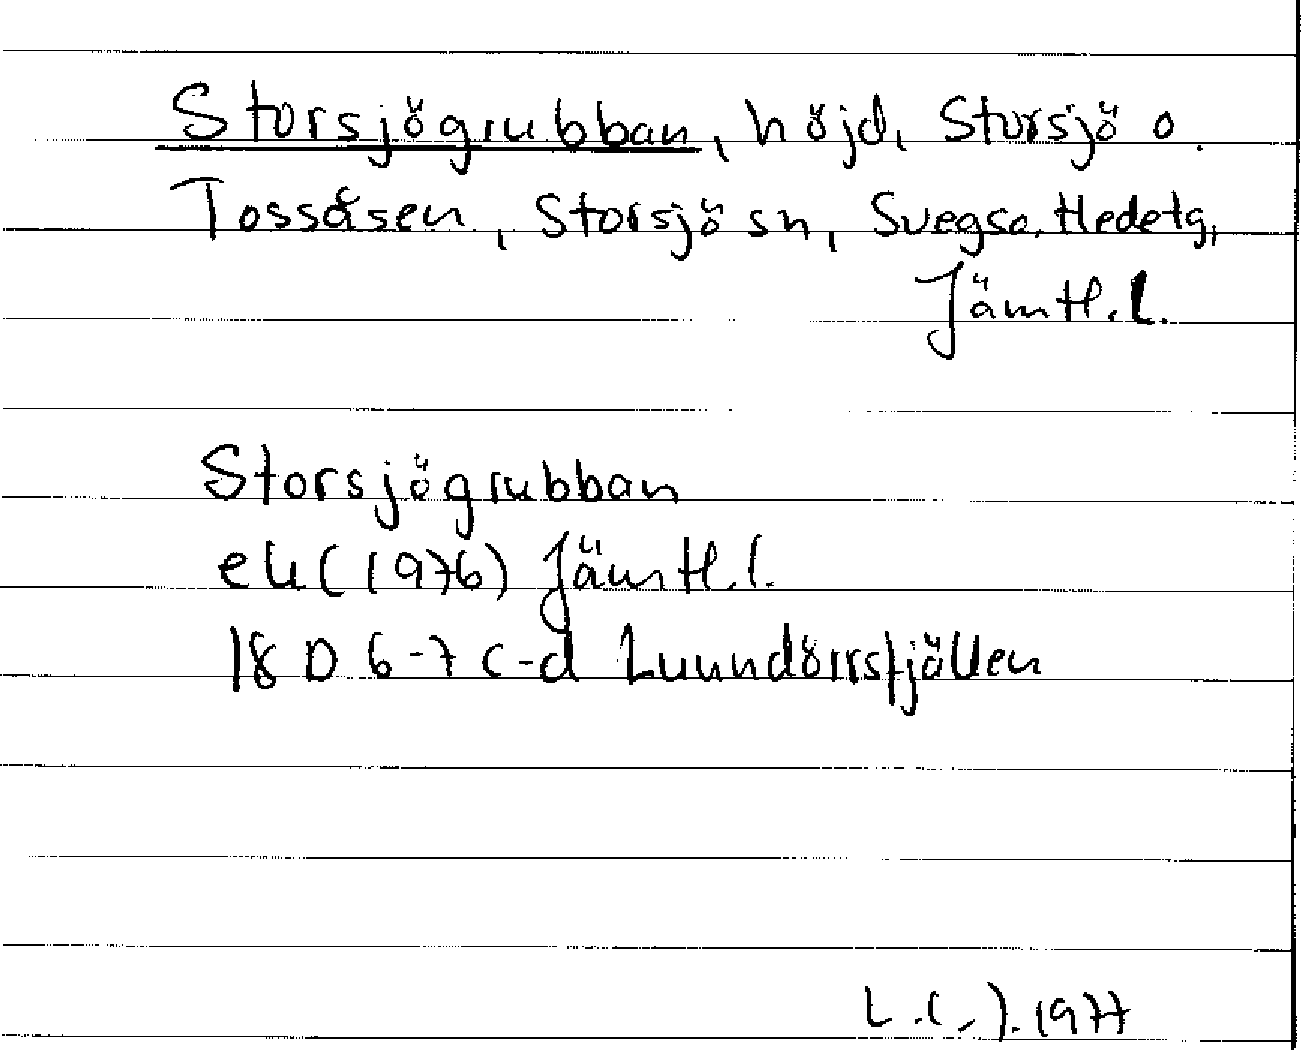 Storsjögrubban, höjd, Storsjö o.
Tossåsen, Storsjö sn, Svegs o. Hede tg,
Jämtl. l.
Storsjögrubban
ek (1976) Jämtl. l.
18 D 6-7 c-d Lunndörrsfjällen
1977